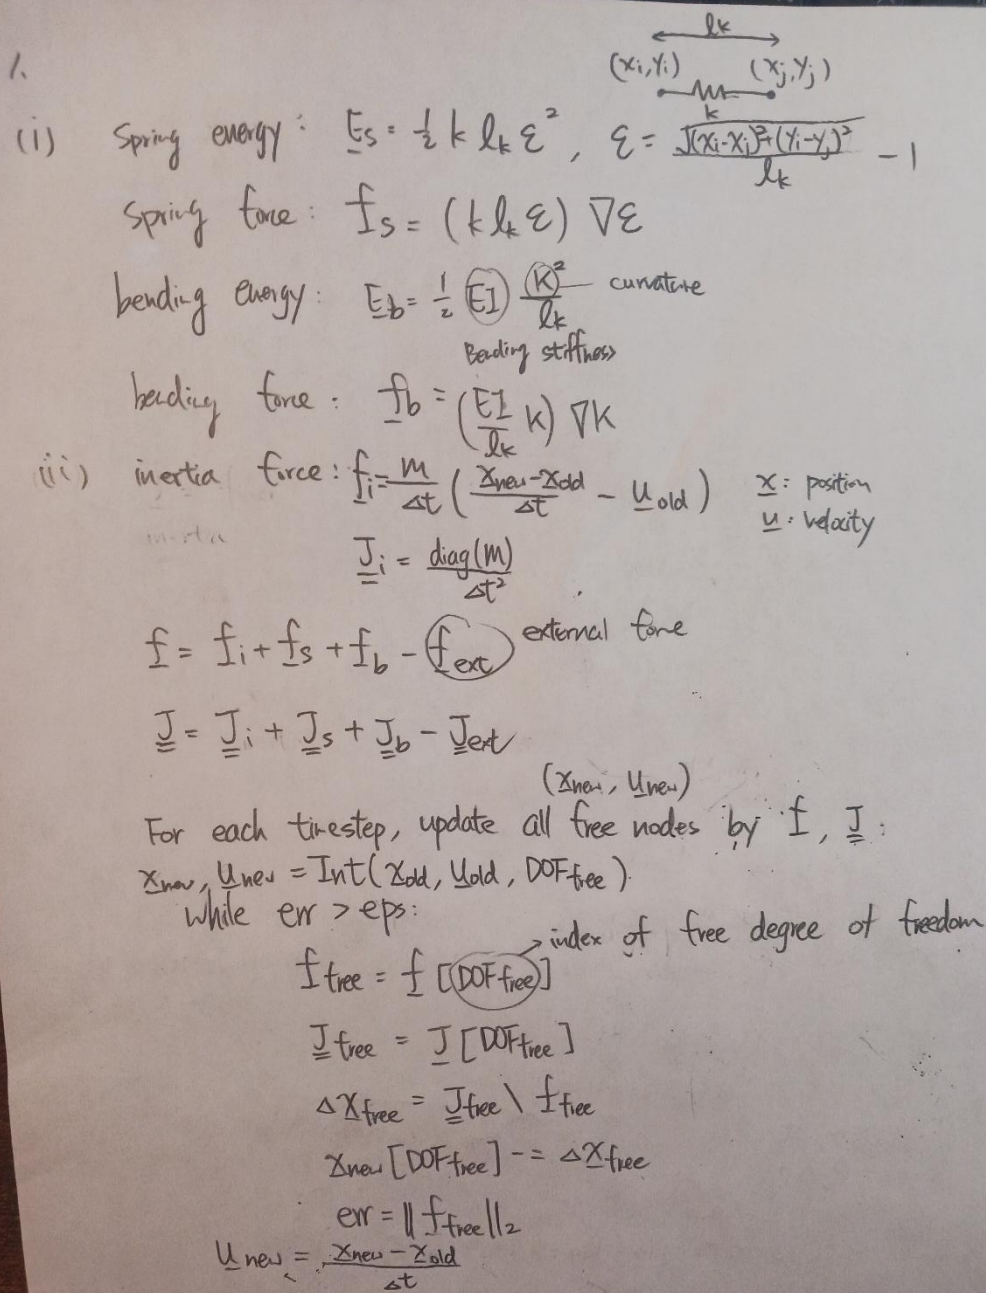 1.
lk
(xi,Yi) (xj,Yj)
k
(i) Spring energy: Es = ½ k lk ε², ε = √(xi-xj)²+(Yi-Yj)² / lk - 1
Spring force: fs = (k lk ε) ∇ε
bending energy: Eb = ½ EI K²/lk curvature
Bending stiffness
bending force: fb = (EI/lk K) ∇K
(ii) inertia force: fi = m/Δt (xnew-xold/Δt - uold) x: position
u: velocity
Ji = diag(m)/Δt²
f = fi + fs + fb - fext external force
J = Ji + Js + Jb - Jext
(xnew, unew)
For each timestep, update all free nodes by f, J:
xnew, unew = Int(xold, uold, DOFfree)
while err > eps:
index of free degree of freedom
ffree = f [DOFfree]
Jfree = J [DOFfree]
ΔXfree = Jfree \ ffree
Xnew [DOFfree] -= ΔXfree
err = ||ffree||2
unew = xnew-xold/Δt